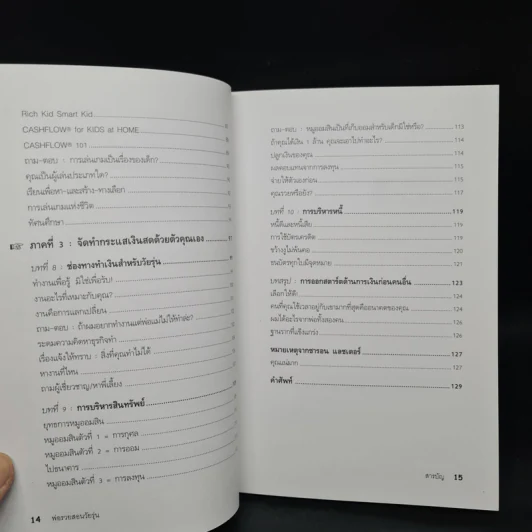 Rich Kid Smart Kid
CASHFLOW® for KIDS at HOME
CASHFLOW® 101
ถาม-ตอบ : การเล่นเกมเป็นเรื่องของเด็ก?
คุณเป็นผู้เล่นประเภทใด?
เรียนเพื่อหา-และสร้าง-ทางเลือก
การเล่นเกมแห่งชีวิต
ทัศนศึกษา
ภาคที่ 3 : จัดทำกระแสเงินสดด้วยตัวคุณเอง
บทที่ 8 : ช่องทางทำเงินสำหรับวัยรุ่น
ทำงานเพื่อรู้ มิใช่เพื่อรับ!
งานอะไรที่เหมาะกับคุณ?
งานคือการแลกเปลี่ยน
ถาม-ตอบ : ถ้าผมอยากทำงานแต่พ่อแม่ไม่ให้ทำล่ะ?
ระดมความคิดหาธุรกิจทำ
เรื่องแจ้งให้ทราบ : สิ่งที่คุณทำไม่ได้
หางานที่ไหน
ถามผู้เชี่ยวชาญ/หาพี่เลี้ยง
บทที่ 9 : การบริหารสินทรัพย์
ยุทธการหมูออมสิน
หมูออมสินตัวที่ 1 = การกุศล
หมูออมสินตัวที่ 2 = การออม
ไปธนาคาร
หมูออมสินตัวที่ 3 = การลงทุน
14 พ่อรวยสอนวัยรุ่น
ถาม-ตอบ : หมูออมสินเป็นที่เก็บออมสำหรับเด็กมิใช่หรือ? 113
ถ้าคุณได้เงิน 1 ล้าน คุณจะเอาไปทำอะไร? 114
ปลูกเงินของคุณ 114
ผลตอบแทนจากการลงทุน
จ่ายให้ตัวเองก่อน
คุณรวยหรือยัง?
บทที่ 10 : การบริหารหนี้ 119
หนี้ดีและหนี้เสีย 119
การใช้บัตรเครดิต
ขว้างงูไม่พ้นคอ
ธนบัตรทุกใบมีจุดหมาย
บทสรุป : การออกสตาร์ตด้านการเงินก่อนคนอื่น 123
เลือกให้ดี 124
คนที่คุณใช้เวลาอยู่กับเขามากที่สุดคืออนาคตของคุณ 124
ผมได้อะไรจากพ่อทั้งสองคน
ฐานรากที่แข็งแกร่ง
หมายเหตุจากชารอน เลชเตอร์ 127
คุณแม่มาก 127
คำศัพท์ 129
สารบัญ 15